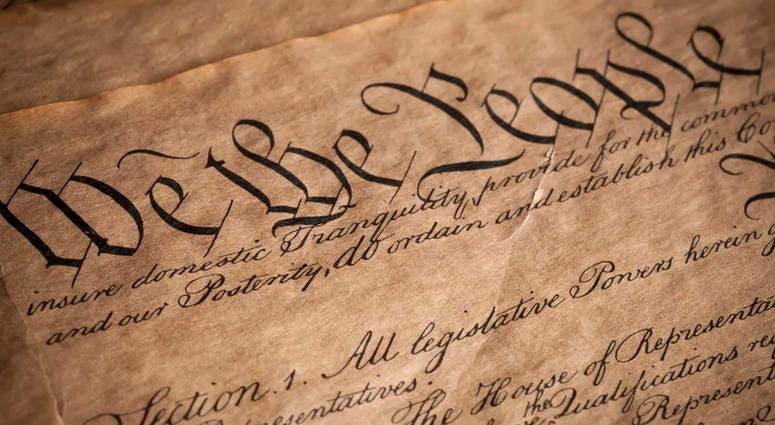 We the People
insure domestic Tranquility, provide for the common
and our Posterity, do ordain and establish this Co
Section. 1. All legislative Powers herein g
Representatives.
The House of Representa
the Qualifications re
Representa